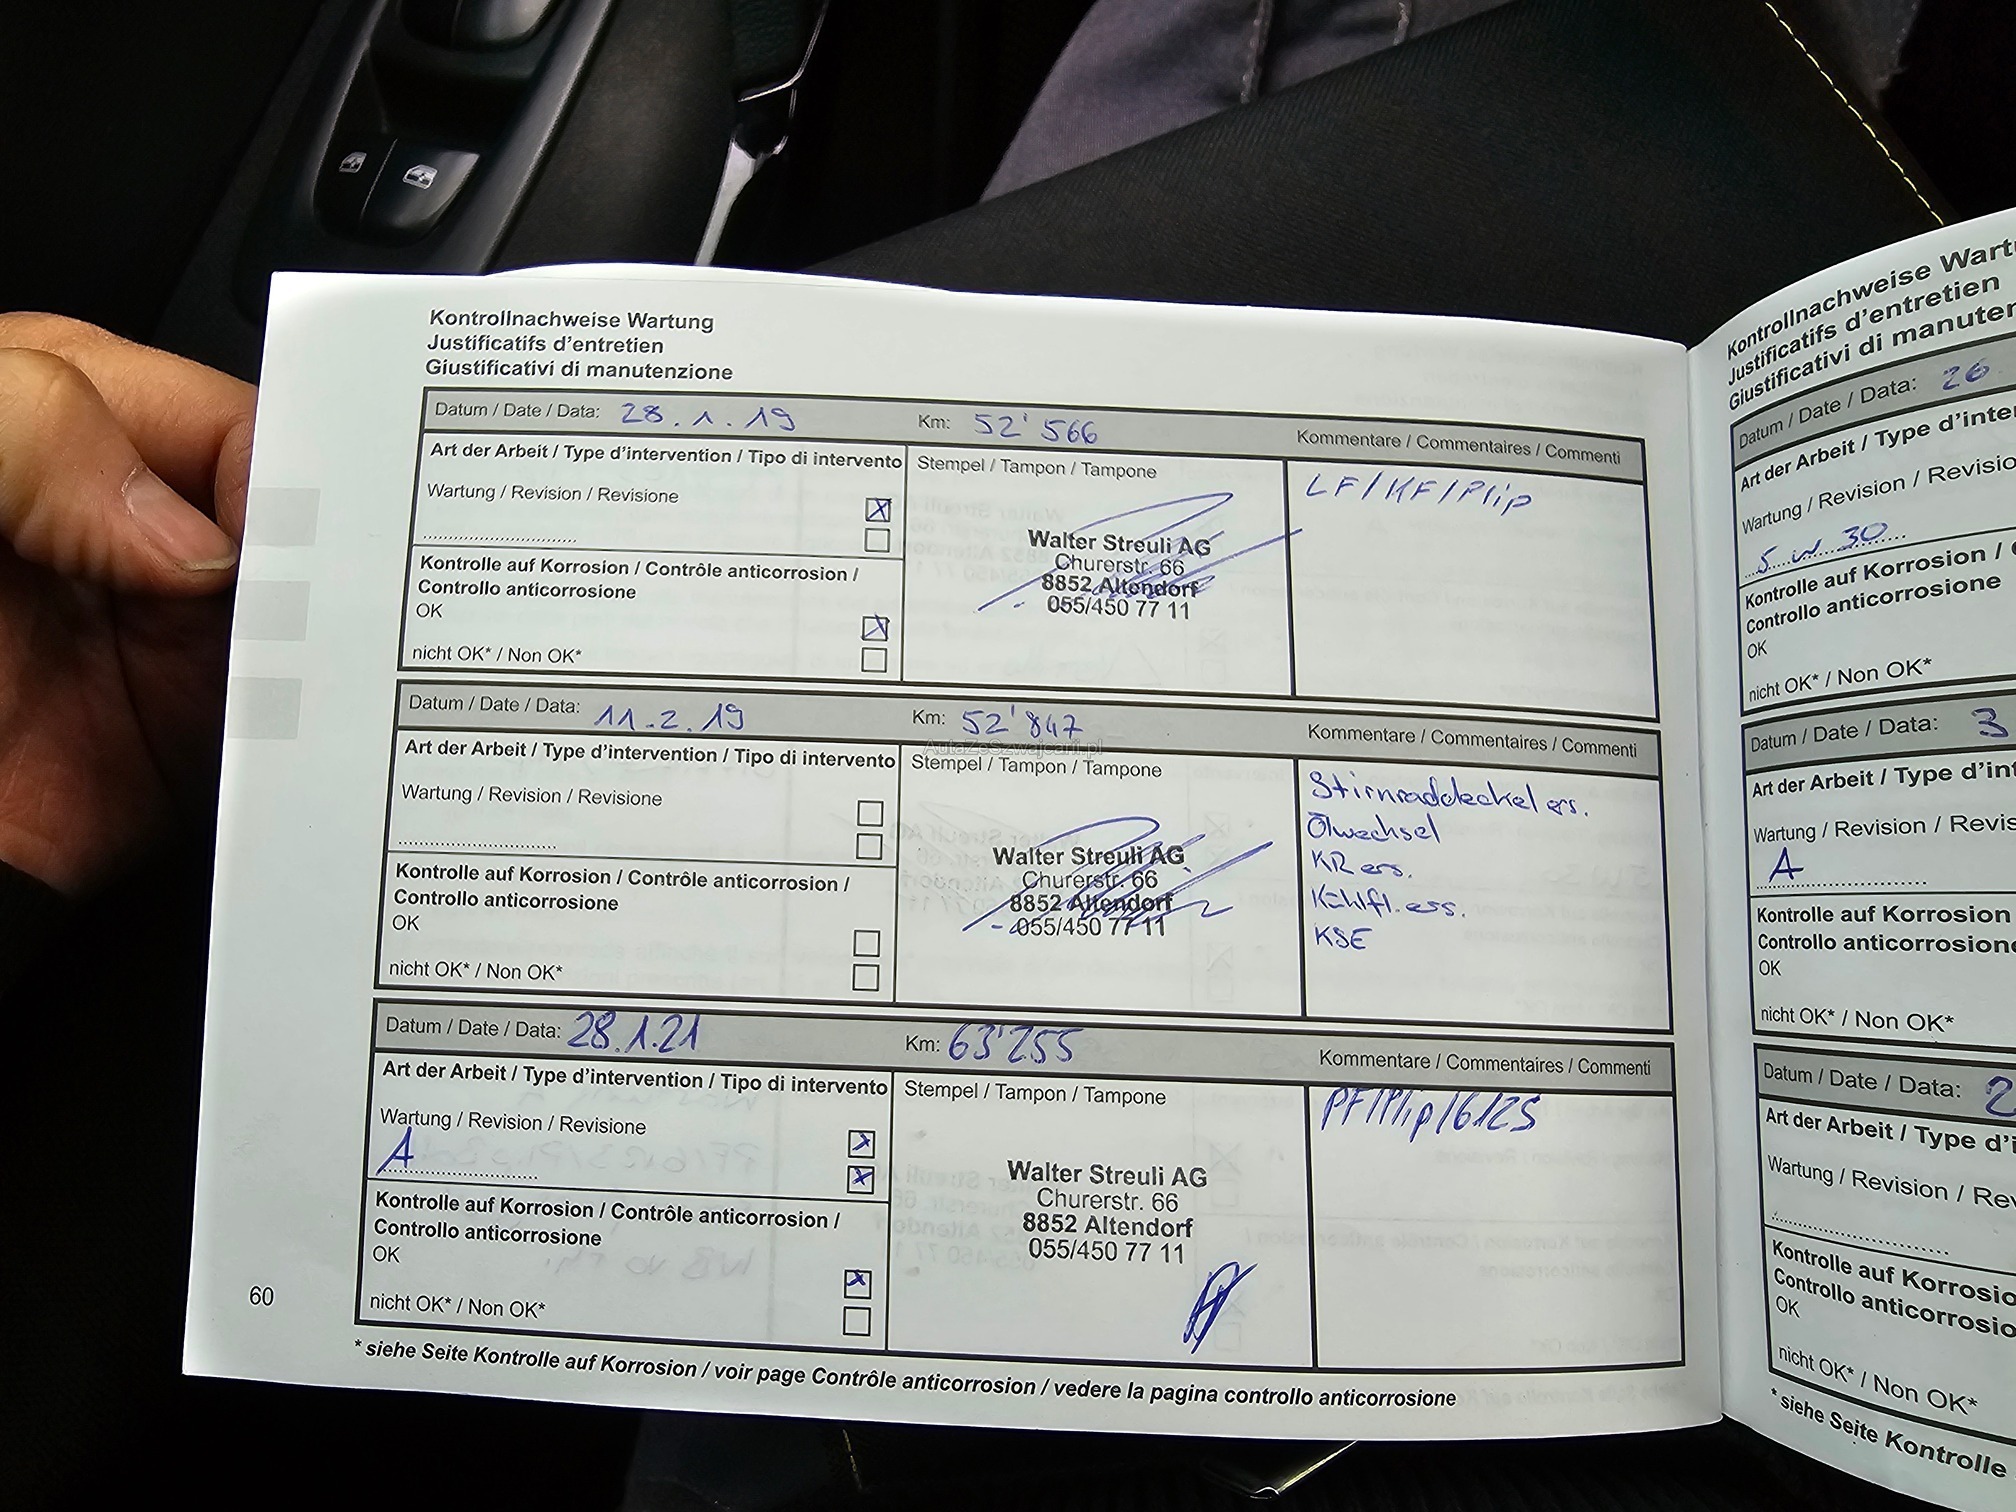 Kontrollnachweise Wartung
Justificatifs d'entretien
Giustificativi di manutenzione
Datum / Date / Data: 28.1.19 Km: 52'566 Kommentare / Commentaires / Commenti
Art der Arbeit / Type d'intervention / Tipo di intervento
Stempel / Tampon / Tampone
LF/KF/Plip
Wartung / Revision / Revisione
Walter Streuli AG
Churerstr. 66
8852 Altendorf
055/450 77 11
Kontrolle auf Korrosion / Contrôle anticorrosion /
Controllo anticorrosione
OK
nicht OK* / Non OK*
Datum / Date / Data: 11.2.19 Km: 52'847 Kommentare / Commentaires / Commenti
AutaZeSzwajcarii.pl
Art der Arbeit / Type d'intervention / Tipo di intervento
Stempel / Tampon / Tampone
Stirnraddeckel ers.
Ölwechsel
KR ers.
Kühlfl. ers.
KSE
Wartung / Revision / Revisione
Walter Streuli AG
Churerstr. 66
8852 Altendorf
055/450 77 11
Kontrolle auf Korrosion / Contrôle anticorrosion /
Controllo anticorrosione
OK
nicht OK* / Non OK*
Datum / Date / Data: 28.1.21 Km: 63'255 Kommentare / Commentaires / Commenti
Art der Arbeit / Type d'intervention / Tipo di intervento
Stempel / Tampon / Tampone
PF/Plip/6125
Wartung / Revision / Revisione
A
Walter Streuli AG
Churerstr. 66
8852 Altendorf
055/450 77 11
Kontrolle auf Korrosion / Contrôle anticorrosion /
Controllo anticorrosione
OK
nicht OK* / Non OK*
60
* siehe Seite Kontrolle auf Korrosion / voir page Contrôle anticorrosion / vedere la pagina controllo anticorrosione
Kontrollnachweise Wart
Justificatifs d'entretien
Giustificativi di manuten
Datum / Date / Data: 26
Art der Arbeit / Type d'inte
Wartung / Revision / Revisio
5 W 30
Kontrolle auf Korrosion /
Controllo anticorrosione
OK
nicht OK* / Non OK*
Datum / Date / Data: 3
Art der Arbeit / Type d'int
Wartung / Revision / Revis
A
Kontrolle auf Korrosion
Controllo anticorrosione
OK
nicht OK* / Non OK*
Datum / Date / Data: 2
Art der Arbeit / Type d'i
Wartung / Revision / Re
Kontrolle auf Korrosio
Controllo anticorrosio
OK
nicht OK* / Non OK*
* siehe Seite Kontrolle